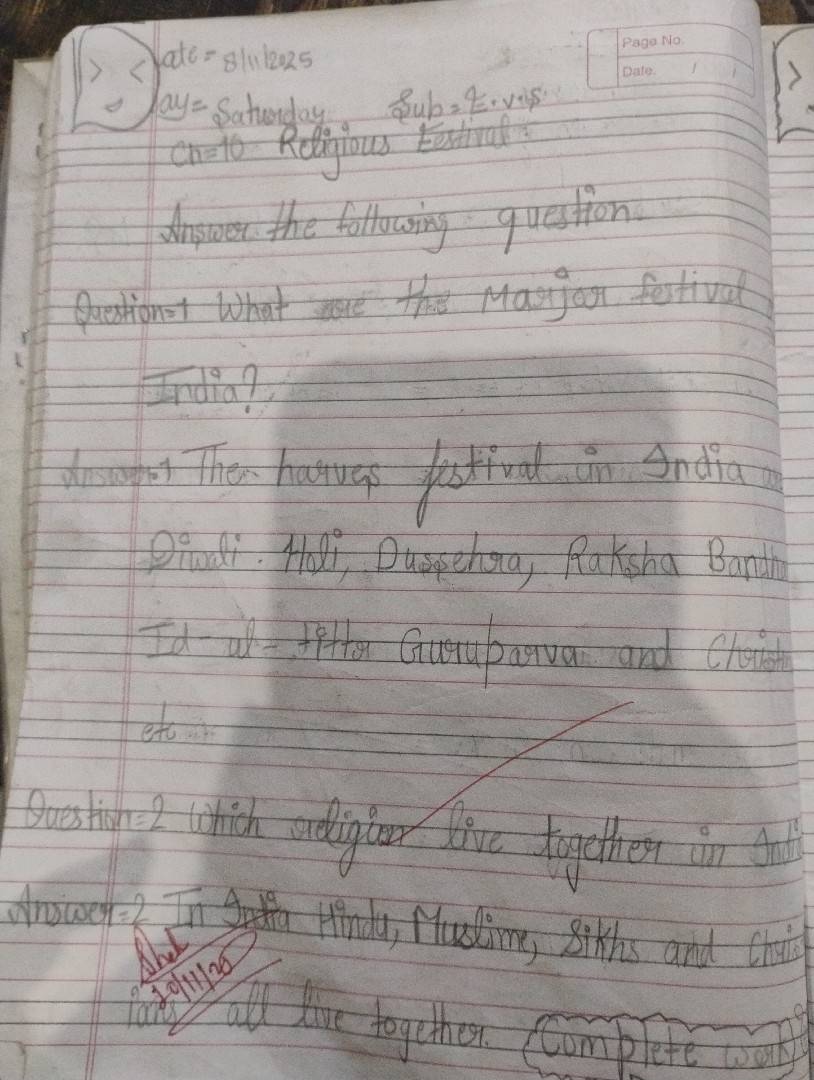 Page No.
Date. / /
ate = 8/11/2025
ay = Saturday Sub = E.v.s.
Ch=10 Religious Festival.
Answer the following question
Question=1 What are the Marjar festival
India?
Answer=1 The harves festival in India
Diwali. Holi, Dussehra, Raksha Bandha
Id-ul-fitter Guruparva and Christ
etc
Question=2 Which religion live together in Indi
Answer=2 In India Hindu, Muslime, Sikhs and Chris
10/11/25
ians all live together. Complete work